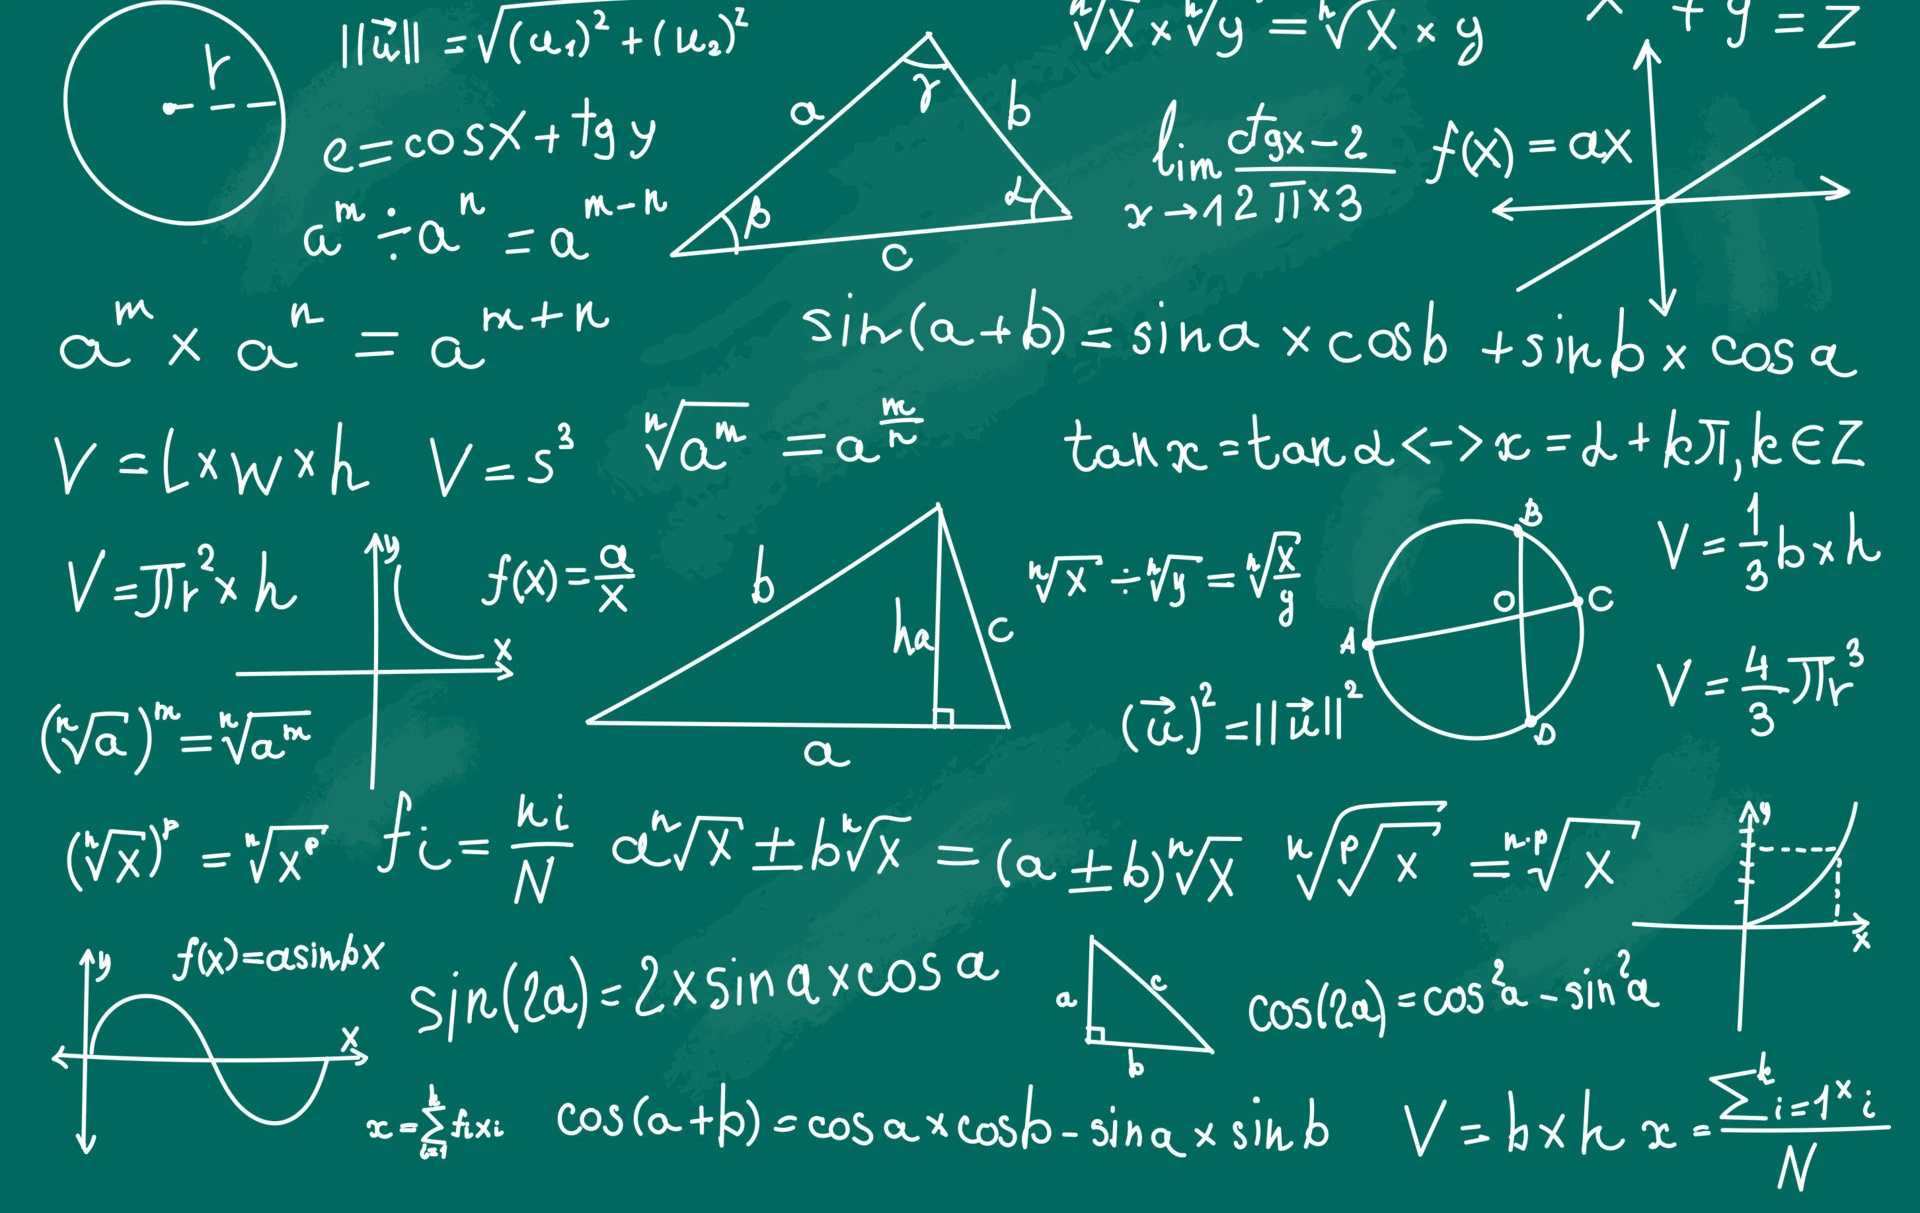 r
||u⃗|| = √(u₁)² + (u₂)²
ⁿ√x × ⁿ√y = ⁿ√x × y
+ y = z
e = cosx + tg y
a b c γ β α
lim x→1 ctgx−2 / 2π×3
f(x) = ax
aᵐ ÷ aⁿ = aᵐ⁻ⁿ
aᵐ × aⁿ = aᵐ⁺ⁿ
sin(a+b) = sina × cosb + sinb × cosa
V = l×w×h
V = s³
ⁿ√aᵐ = a^(m/n)
tanx = tanα <-> x = α + kπ, k ∈ Z
V = πr² × h
y x
f(x) = a/x
b ha c a
ⁿ√x ÷ ⁿ√y = ⁿ√x/y
B O C A D
V = 1/3 b×h
(ⁿ√a)ᵐ = ⁿ√aᵐ
(u⃗)² = ||u⃗||²
V = 4/3 πr³
(ⁿ√x)ᵖ = ⁿ√xᵖ
fi = ni/N
aⁿ√x ± bⁿ√x = (a ± b)ⁿ√x
ⁿ√ᵖ√x = ⁿ·ᵖ√x
y x
y x
f(x) = asinbx
sin(2a) = 2×sina×cosa
a c b
cos(2a) = cos²a − sin²a
x = Σ k i=1 fixi
cos(a+b) = cosa × cosb − sina × sinb
V = b×h
x = Σ k i=1 x i / N